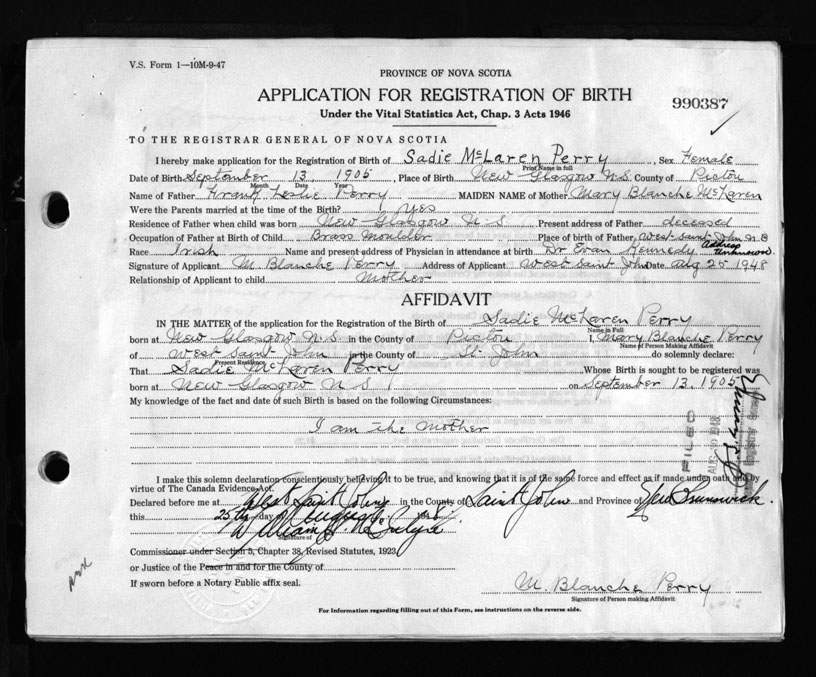 V.S. Form 1—10M-9-47
PROVINCE OF NOVA SCOTIA
APPLICATION FOR REGISTRATION OF BIRTH
Under the Vital Statistics Act, Chap. 3 Acts 1946
990387
TO THE REGISTRAR GENERAL OF NOVA SCOTIA
I hereby make application for the Registration of Birth of Sadie McLaren Perry, Sex Female
Print Name in full
Date of Birth September 13, 1905, Place of Birth New Glasgow N.S. County of Pictou
Month Date Year
Name of Father Frank Leslie Perry MAIDEN NAME of Mother Mary Blanche McLaren
Were the Parents married at the time of the Birth? Yes
Residence of Father when child was born New Glasgow N-S Present address of Father deceased
Occupation of Father at Birth of Child Brass Moulder Place of birth of Father, West Saint John N B
Race Irish Name and present address of Physician in attendance at birth Dr Evan Kennedy Address Unknown
Signature of Applicant M. Blanche Perry Address of Applicant West Saint John Date Aug 25 1948
Relationship of Applicant to child Mother
AFFIDAVIT
IN THE MATTER of the application for the Registration of Birth of Sadie McLaren Perry
Name in Full
born at New Glasgow N.S. in the County of Pictou I, Mary Blanche Perry
Present Residence Name of Person Making Affidavit
of West Saint John in the County of St. John do solemnly declare:
That Sadie McLaren Perry Whose Birth is sought to be registered was
born at New Glasgow N S on September 13, 1905
My knowledge of the fact and date of such Birth is based on the following Circumstances:
I am the Mother
FILED
I make this solemn declaration conscientiously believing it to be true, and knowing that it is of the same force and effect as if made under oath and by
virtue of The Canada Evidence Act.
Declared before me at West Saint John in the County of Saint John and Province of New Brunswick.
this 25th day of August
Signature of
Commissioner under Section 5, Chapter 38, Revised Statutes, 1923
or Justice of the Peace in and for the County of
If sworn before a Notary Public affix seal.
M. Blanche Perry
Signature of Person making Affidavit
For Information regarding filling out of this Form, see instructions on the reverse side.